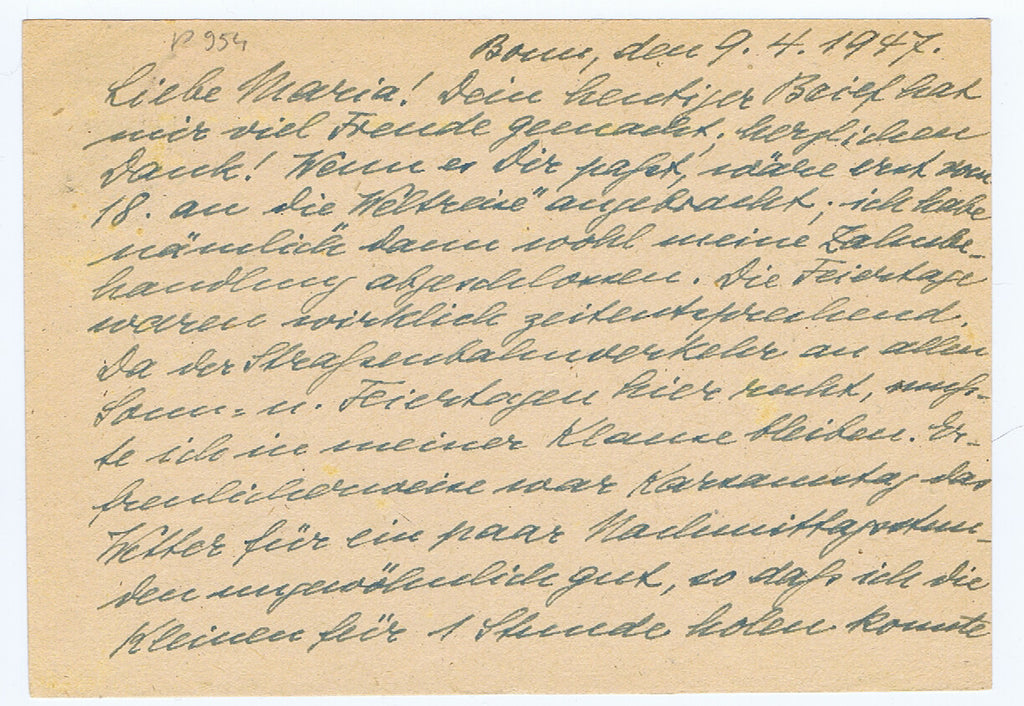 P 954
Bonn, den 9. 4. 1947.
Liebe Maria! Dein heutiger Brief hat
mir viel Freude gemacht, herzlichen
Dank! Wenn es Dir paßt, wäre erst vom
18. an die „Weltreise“ angebracht; ich habe
nämlich dann wohl meine Zahnbe-
handlung abgeschlossen. Die Feiertage
waren wirklich zeitentsprechend.
Da der Straßenbahnverkehr an allen
Sonn- u. Feiertagen hier ruht, muß-
te ich in meiner Klause bleiben. Er-
freulicherweise war Karsamstag das
Wetter für ein paar Nachmittagsstun-
den ungewöhnlich gut, so daß ich die
Kleinen für 1 Stunde holen konnte